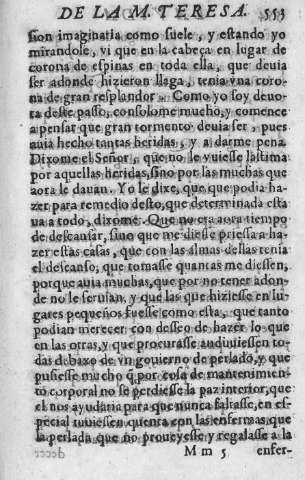 DE LA M. TERESA. 553
sion imaginaria como suele, y estando yo
mirandole, vi que en la cabeça en lugar de
corona de espinas en toda ella, que deuia
ser adonde hizieron llaga, tenia vna coro-
na de gran resplandor. Como yo soy deuo-
ta deste passo, consolome mucho, y comence
a pensar que gran tormento deuia ser, pues
auia hecho tantas heridas, y a darme pena.
Dixome el Señor, que no le vuiesse lastima
por aquellas heridas, sino por las muchas que
aora le dauan. Yo le dixe, que que podia ha-
zer para remedio desto, que determinada esta
ua a todo, dixome. Que no era aora tiempo
de descansar, sino que me diesse priessa a ha-
zer estas casas, que con las almas dellas tenia
el descanso, que tomasse quantas me diessen,
porque auia muchas, que por no tener adon-
de no le seruian, y que las que hiziesse en lu-
gares pequeños fuesse como esta, que tanto
podian merecer con desseo de hazer lo que
en las otras, y que procurasse anduuiessen to-
das debaxo de vn gouierno de perlado, y que
pusiesse mucho q̃ por cosa de mantenimien-
to corporal no se perdiesse la paz interior, que
el nos ayudaria para que nunca faltasse, en es-
pecial tuuiessen quenta con las enfermas que
la perlada que no proueyesse y regalasse a la
M m 5 enfer-